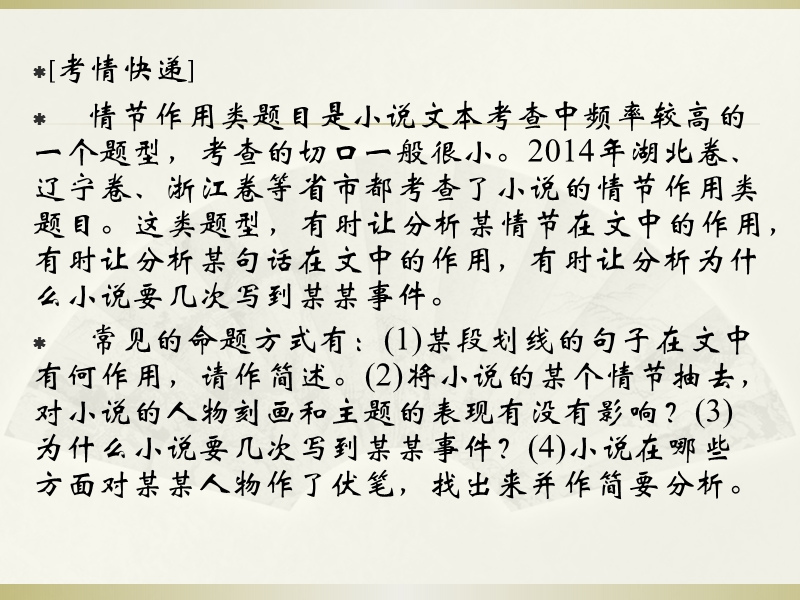 *[考情快递]
* 情节作用类题目是小说文本考查中频率较高的
一个题型，考查的切口一般很小。2014年湖北卷、
辽宁卷、浙江卷等省市都考查了小说的情节作用类
题目。这类题型，有时让分析某情节在文中的作用，
有时让分析某句话在文中的作用，有时让分析为什
么小说要几次写到某某事件。
* 常见的命题方式有：(1)某段划线的句子在文中
有何作用，请作简述。(2)将小说的某个情节抽去，
对小说的人物刻画和主题的表现有没有影响？(3)
为什么小说要几次写到某某事件？(4)小说在哪些
方面对某某人物作了伏笔，找出来并作简要分析。